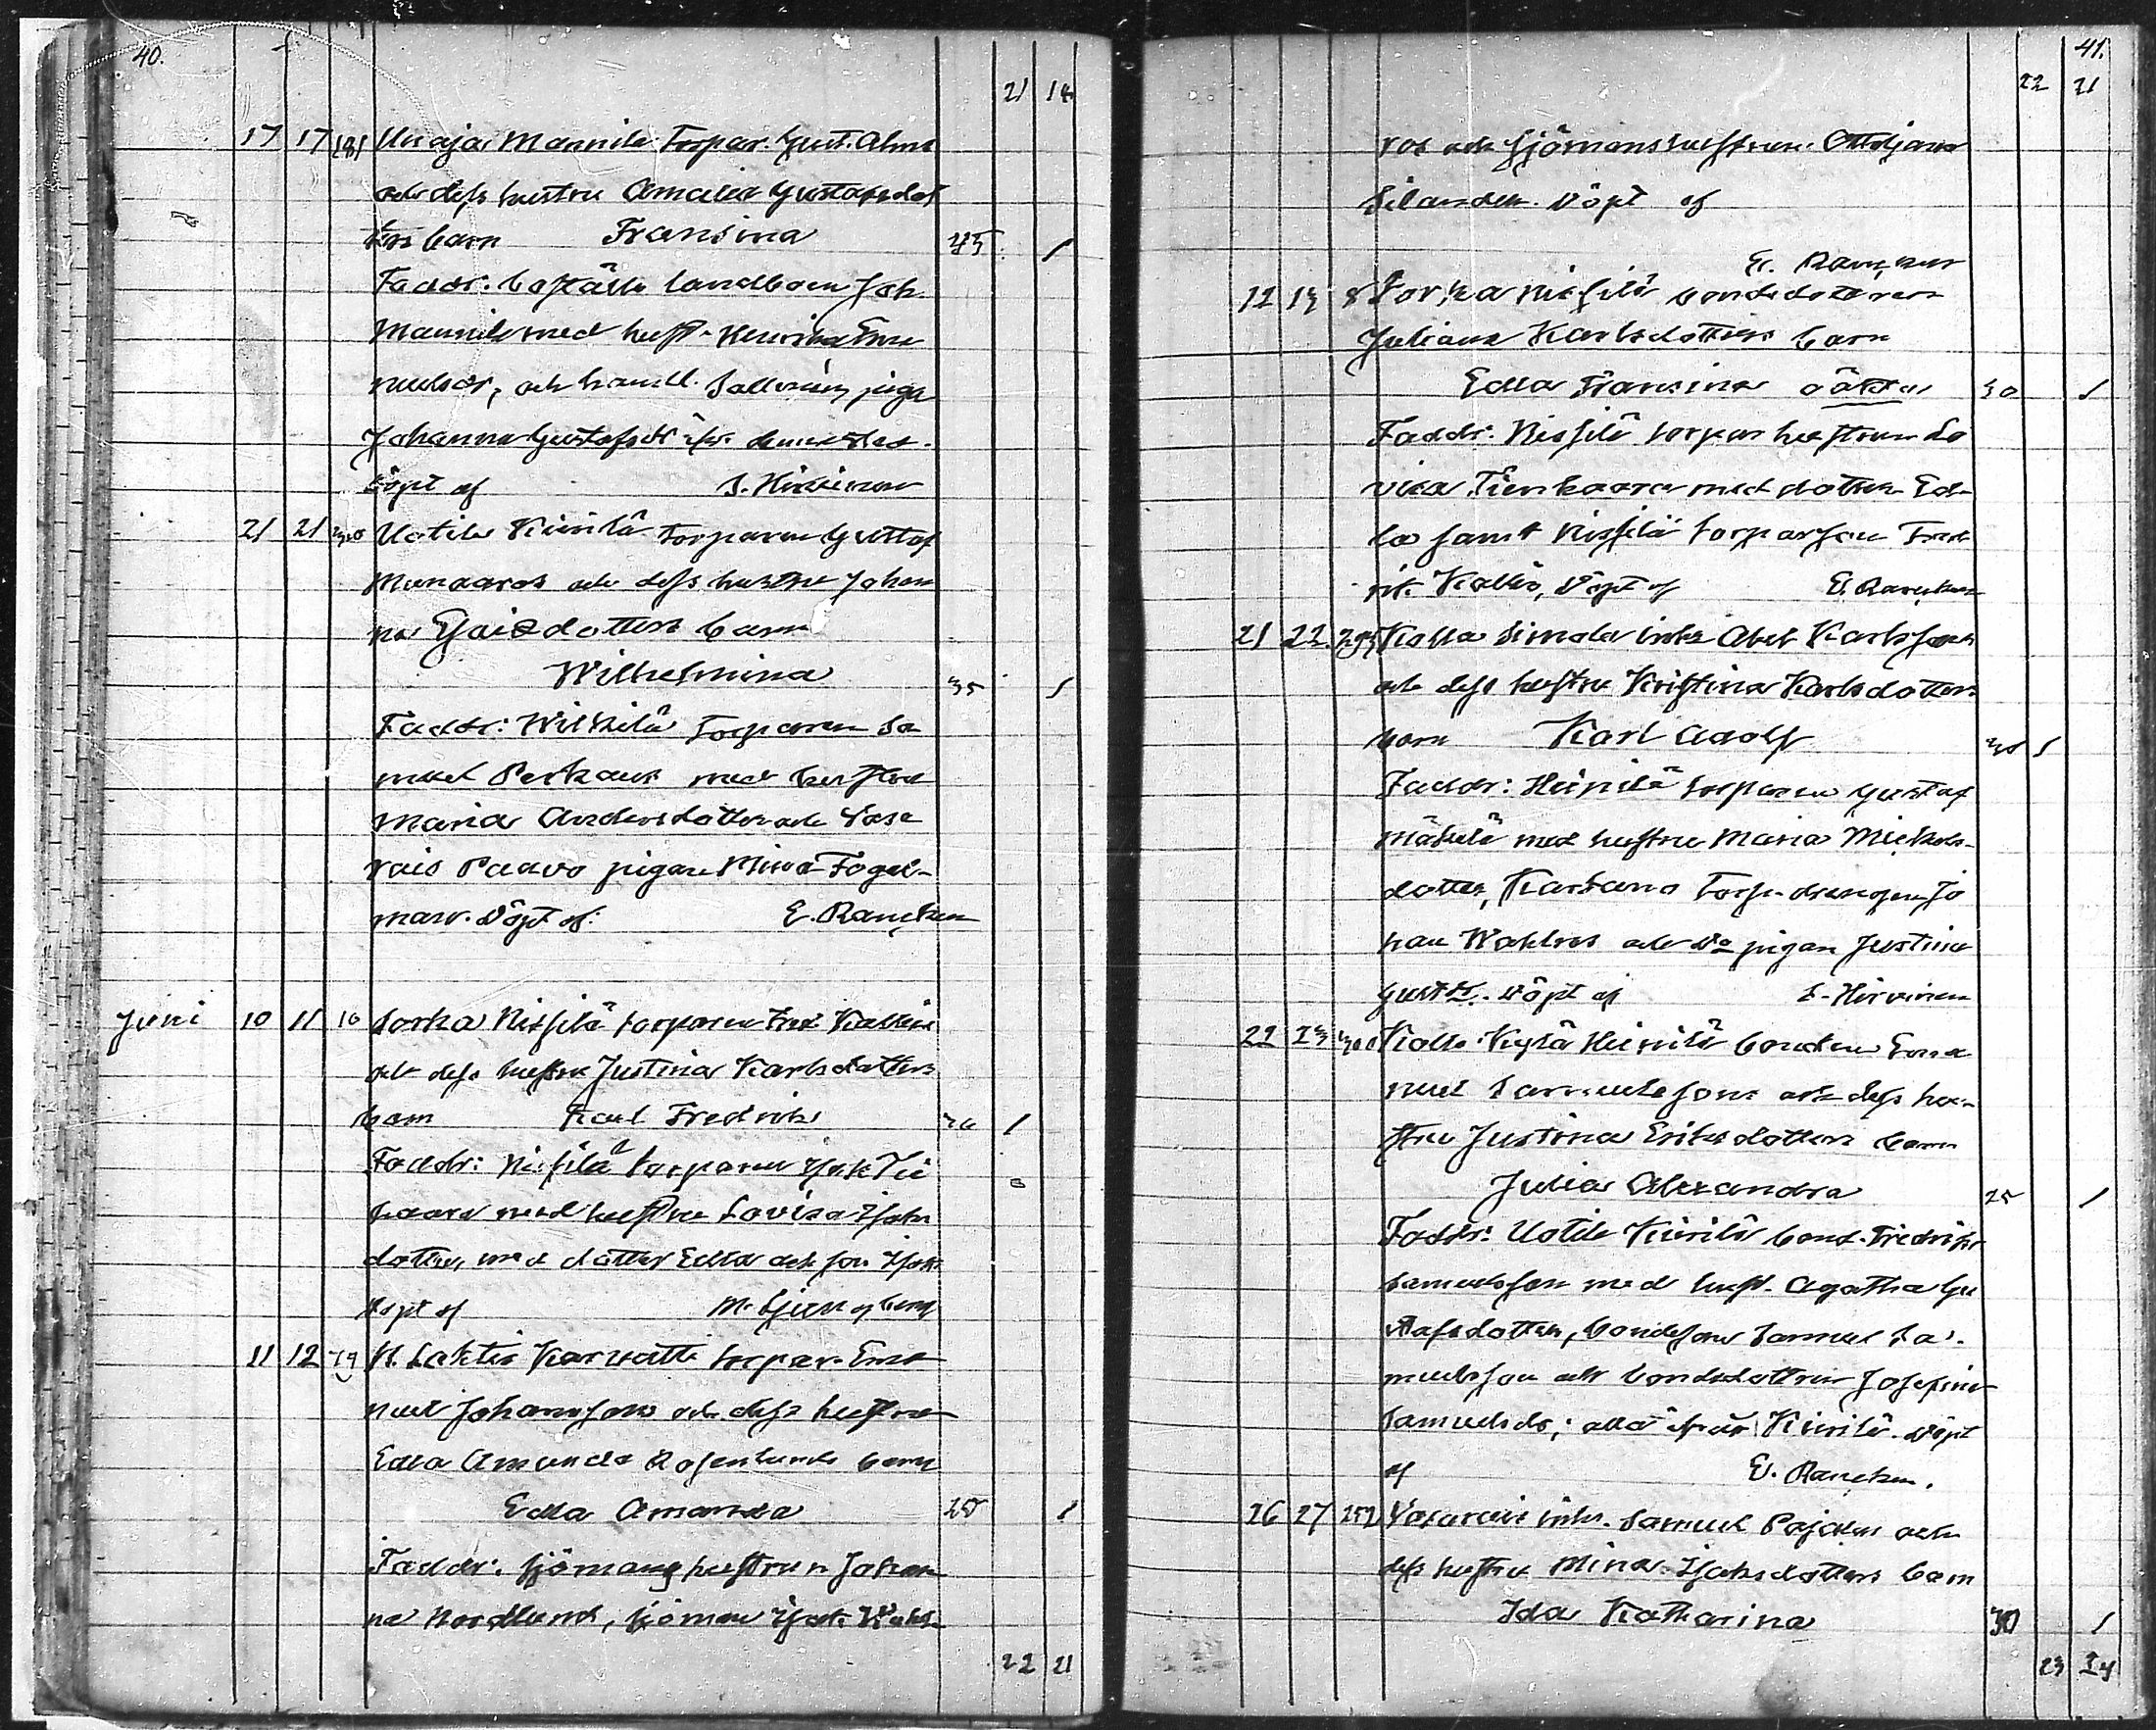 40.
21 18
17 17 181 Unaja Mannila Torpar. Gust. Alms
och dess hustru Amalia Gustafsdot
ters barn Fransina 45 1
Faddr: boställs landboen Joh.
Mannila med hust. Henrika Ema
nuelsdr, och pigan
Johanna Gustafsdr ifr.
döpt af S. Hirvinen
21 21 Uotila Kiirilä torparen Gustaf
Munaaros och dess hustru Johan
na Isaksdotters barn
Wilhelmina 35 1
Faddr: Wilkilä Torparen Sa
muel Perkaus med hustru
Maria Andersdotter och Vasa
rais Paavo pigan Mina Fogel-
man. Döpt af: E. Rancken
Juni 10 11 16 Sorka Nissilä torparen Fred Kallein
och dess hustru Justina Karlsdotters
barn Karl Fredrik 26 1
Faddr: Nissilä torparen Isak Tie
kaara med hustru Lovisa Isaks
dotter, med dotter Edla och son Isak
döpt af M.
11 12 79 N. Lahtis Karvatti torpar. Ema
nuel Johansson och dess hustru
Edla Amanda Rosenlunds barn
Edla Amanda 25 1
Faddr: sjömans hustrun Johan
na Nordlund, sjöman Isak Wahl-
22 21
41.
22 21
ros och sjömans hustrun
Silander. Döpt af
E. Rancken
12 13 8 Sorka Nissilä bondedottren
Juliana Karlsdotters barn
Edla Fransina oäkta 30 1
Faddr. Nissilä torpar hustrun Lo
visa Tienkaara med dotter Ed-
la samt Nissilä torparson Fred
rik Kallio, Döpt af E. Rancken
21 22 293 Kolla Simola inhs Abel Karlsson
och dess hustru Kristina Karlsdotters
barn Karl Adolf 38 1
Faddr: Heinilä torparen Gustaf
Mäkelä med hustru Maria Mickels-
dotter, Torp. drängen Jo
han Wahlros och Do pigan Justina
Gustdr. Döpt af S. Hirvinen
22 23 300 Kolla Kylä Heinilä bonden Ema
nuel Samuelsson och dess hu-
stru Justina Eriksdotters barn
Julia Alexandra 25 1
Faddr: Uotila Kiirilä bond. Fredrik
Samuelsson med hust. Agatha Gu
stafsdotter, bondeson Samuel Sa-
muelsson och bondedottren Josefina
Samuelsdr; alla ifrån Kiirilä. Döpt
af E. Rancken.
26 27 252 Vasarais inhs. Samuel Pajalin och
dess hustru Mina Isaksdotters barn
Ida Katharina 30 1
23 24